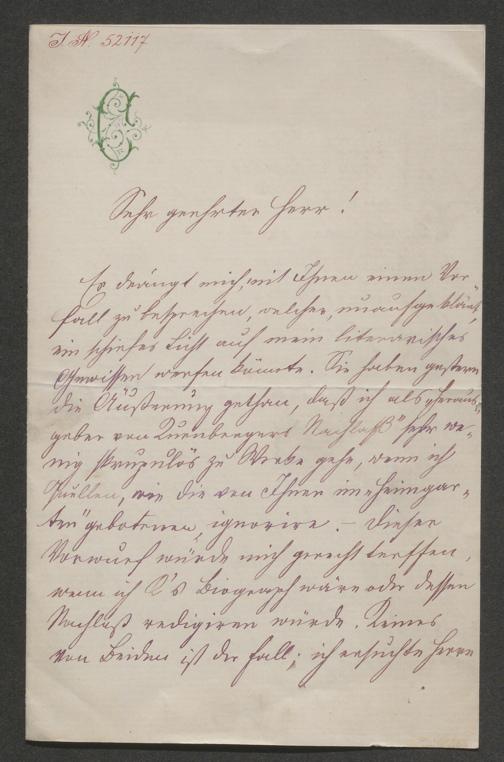 I. N. 52117
Sehr geehrter Herr!
Es drängt mich, mit Ihnen einen Vor-
fall zu besprechen, welcher, unaufgeklärt,
ein schiefes Licht auf mein literarisches
Gewissen werfen könnte. Sie haben gestern
die Äußerung gethan, daß ich als „Heraus-
geber von Kürnbergers Nachlaß" sehr we-
nig skrupulös zu Werke gehe, wenn ich
Quellen, wie die von Ihnen im „Heimgar-
ten" gebotenen, ignorire. – Dieser
Vorwurf würde mich gerecht treffen,
wenn ich K's Biograph wäre oder dessen
Nachlaß redigiren würde. Keines
von Beiden ist der Fall; ich ersuchte Herrn